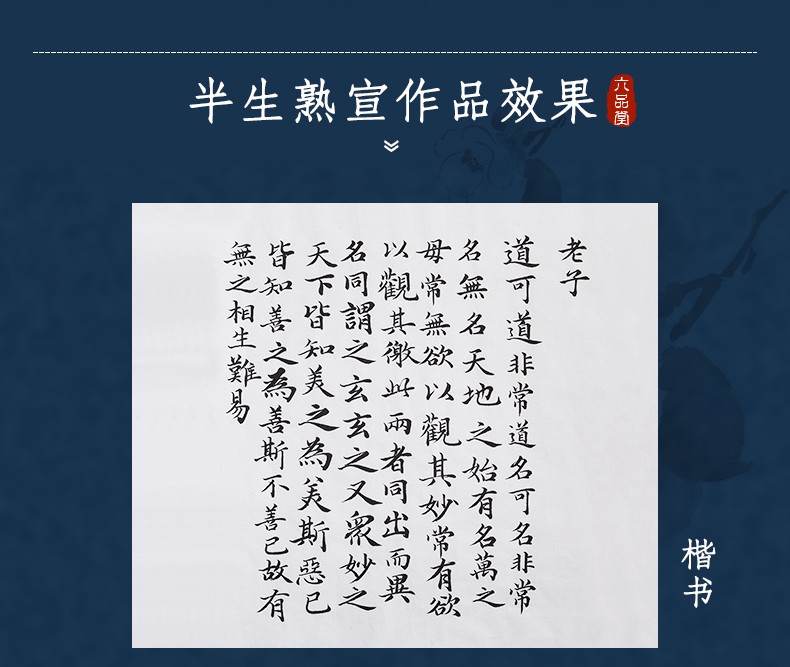 半生熟宣作品效果
六品堂
老子
道可道非常道名可名非常
名無名天地之始有名萬之
毋常無欲以觀其妙常有欲
以觀其徼此兩者同出而異
名同謂之玄玄之又眾妙之
天下皆知美之為美斯惡已
皆知善之為善斯不善已故有
無之相生難易
楷书